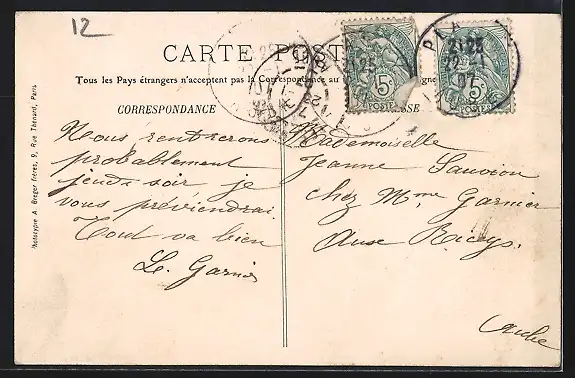 12
CARTE POSTALE
Tous les Pays étrangers n'acceptent pas la Correspondance au
CORRESPONDANCE
Nous rentrerons
probablement
jeudi soir, je
vous préviendrai.
Tout va bien
L. Garnier
Mademoiselle
Jeanne Sauvion
chez Mme Garnier
Aux Riceys.
Aube
Phototypie A. Breger frères, 9, Rue Thénard, Paris
5c
POSTES
5c
POSTES
21 25
22 - 1
07